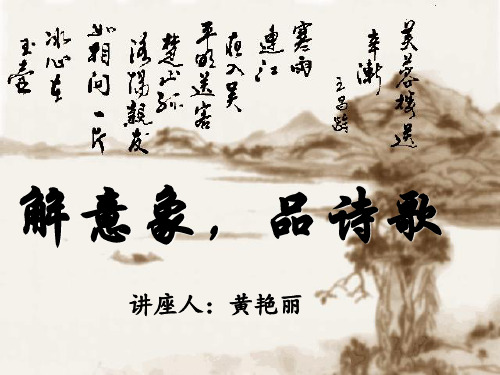 芙蓉樓送
辛漸
王昌齡
寒雨
連江
夜入吴
平明送客
楚山孤
洛陽親友
如相问一片
冰心在
玉壺
解意象，品诗歌
讲座人：黄艳丽